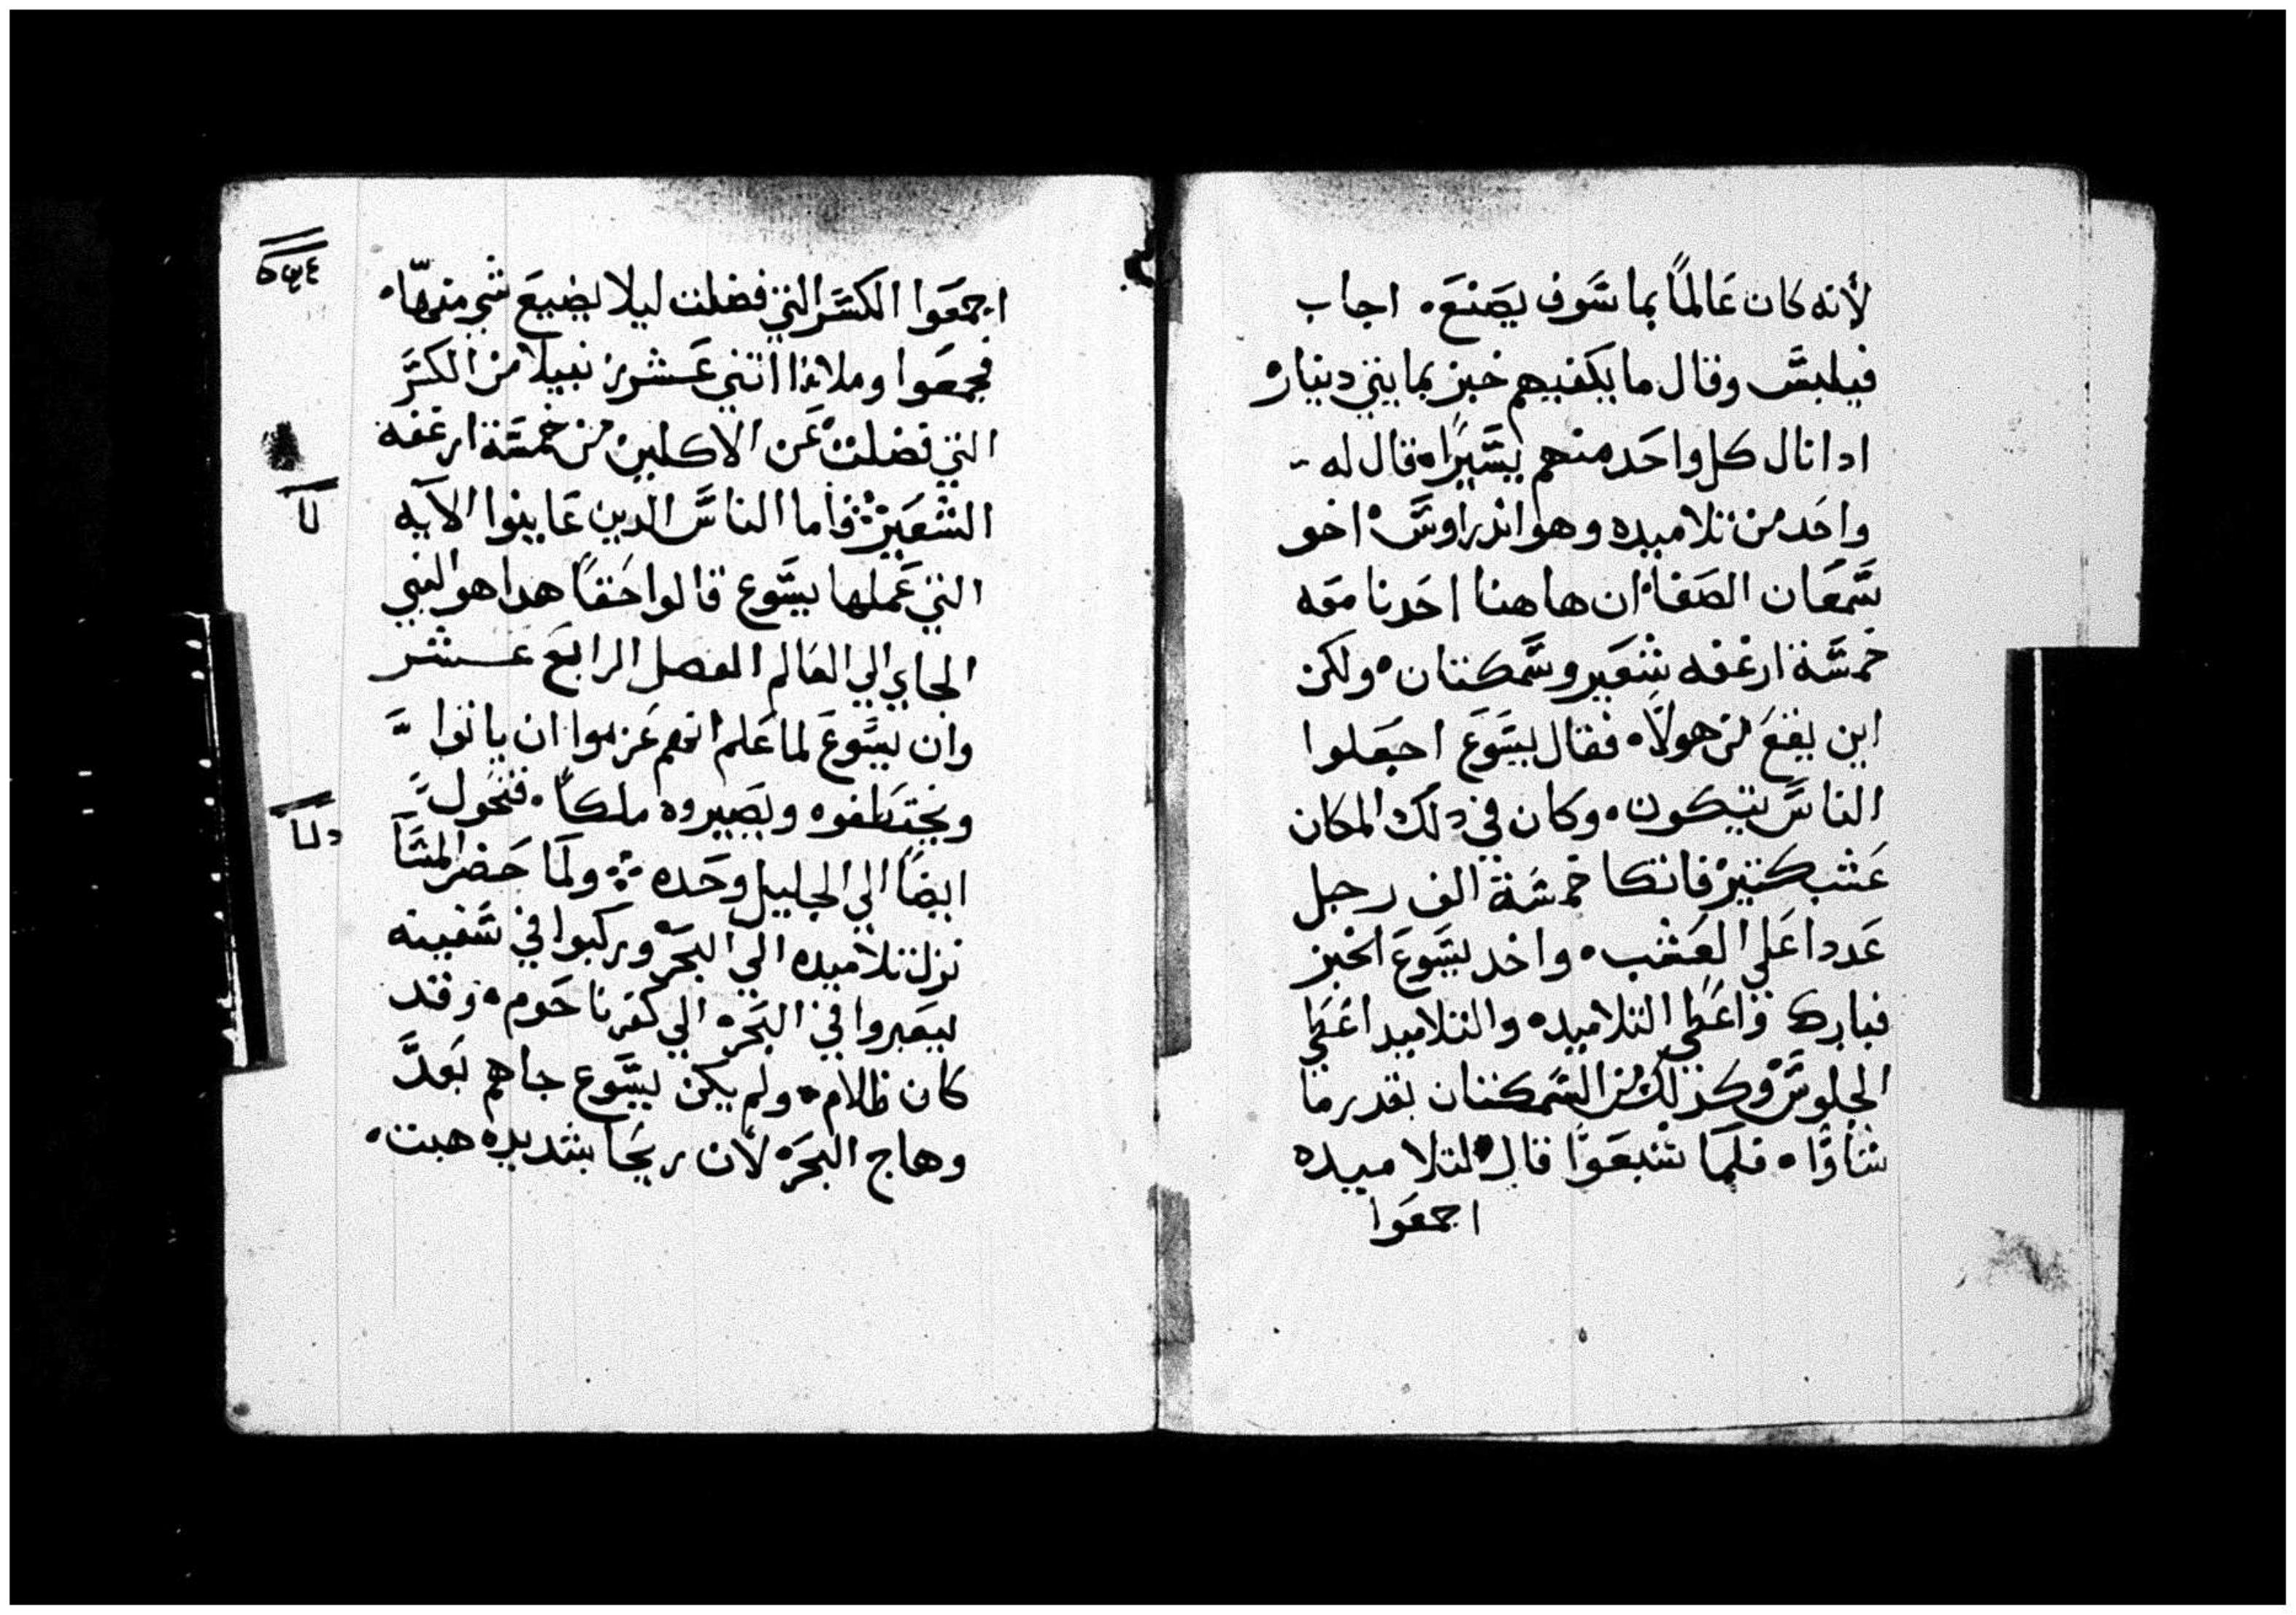 لأنه كان عَالمًا بما سَوف يصَنعَ. اجاب
فيلبسَ وقال ما يكفيهم خبز بمايتي دينار
ادا نال كل واحَد منهم يسَيرًا. قال له
واحَد من تلاميده وهو اندراوسَ اخو
سَمعَان الصَفا ان هاهنا احَدنا معَه
خمسَة ارغفه شعَير وسَمكتان. ولكن
اين يقعَ من هولا. فقال يسَوعَ اجعَلوا
الناسَ يتيكون. وكان في دلك المكان
عَشب كتير فاتكا خمسَة الف رجل
عَددا عَلي العَشب. واخد يسَوعَ الخبز
فبارك واعَطي التلاميده والتلاميد اعَطي
الجلوسَ وكذلك من السَمكتان بقدر ما
شاوَّا. فلمَا شبعَوا قال لتلاميده
اجمعَوا
اجمعَوا الكسَر التي فضلت ليلا يضيعَ شي منهاّ.
فجمعَوا وملاوا اتني عَشر زنبيلا من الكسَر
التي فضلت عَن الاكلين من خمسَة ارغفه
الشعَير فاما الناسَ الدين عَاينوا الآيه
التي عَملها يسَوع قالوا حَقاً هدا هو النبي
الجاي الي العَالم الفصل الرابعَ عَشر
وان يسَوعَ لما عَلم انهم عَزموا ان ياتوا
ويختَطفوه ويصَيروه ملكاً. فتحَول
ايضاً الي الجليل وحَده ولمَا حَضر المسَآ
نزل تلاميده الي البحَر وركبوا في سَفينه
ليعَبروا في البحَره الي كفرناحَوم. وقد
كان ظلام. ولم يكن يسَوع جاهم بعَد
وهاج البحَره لأن ريحَا شديده هبت.